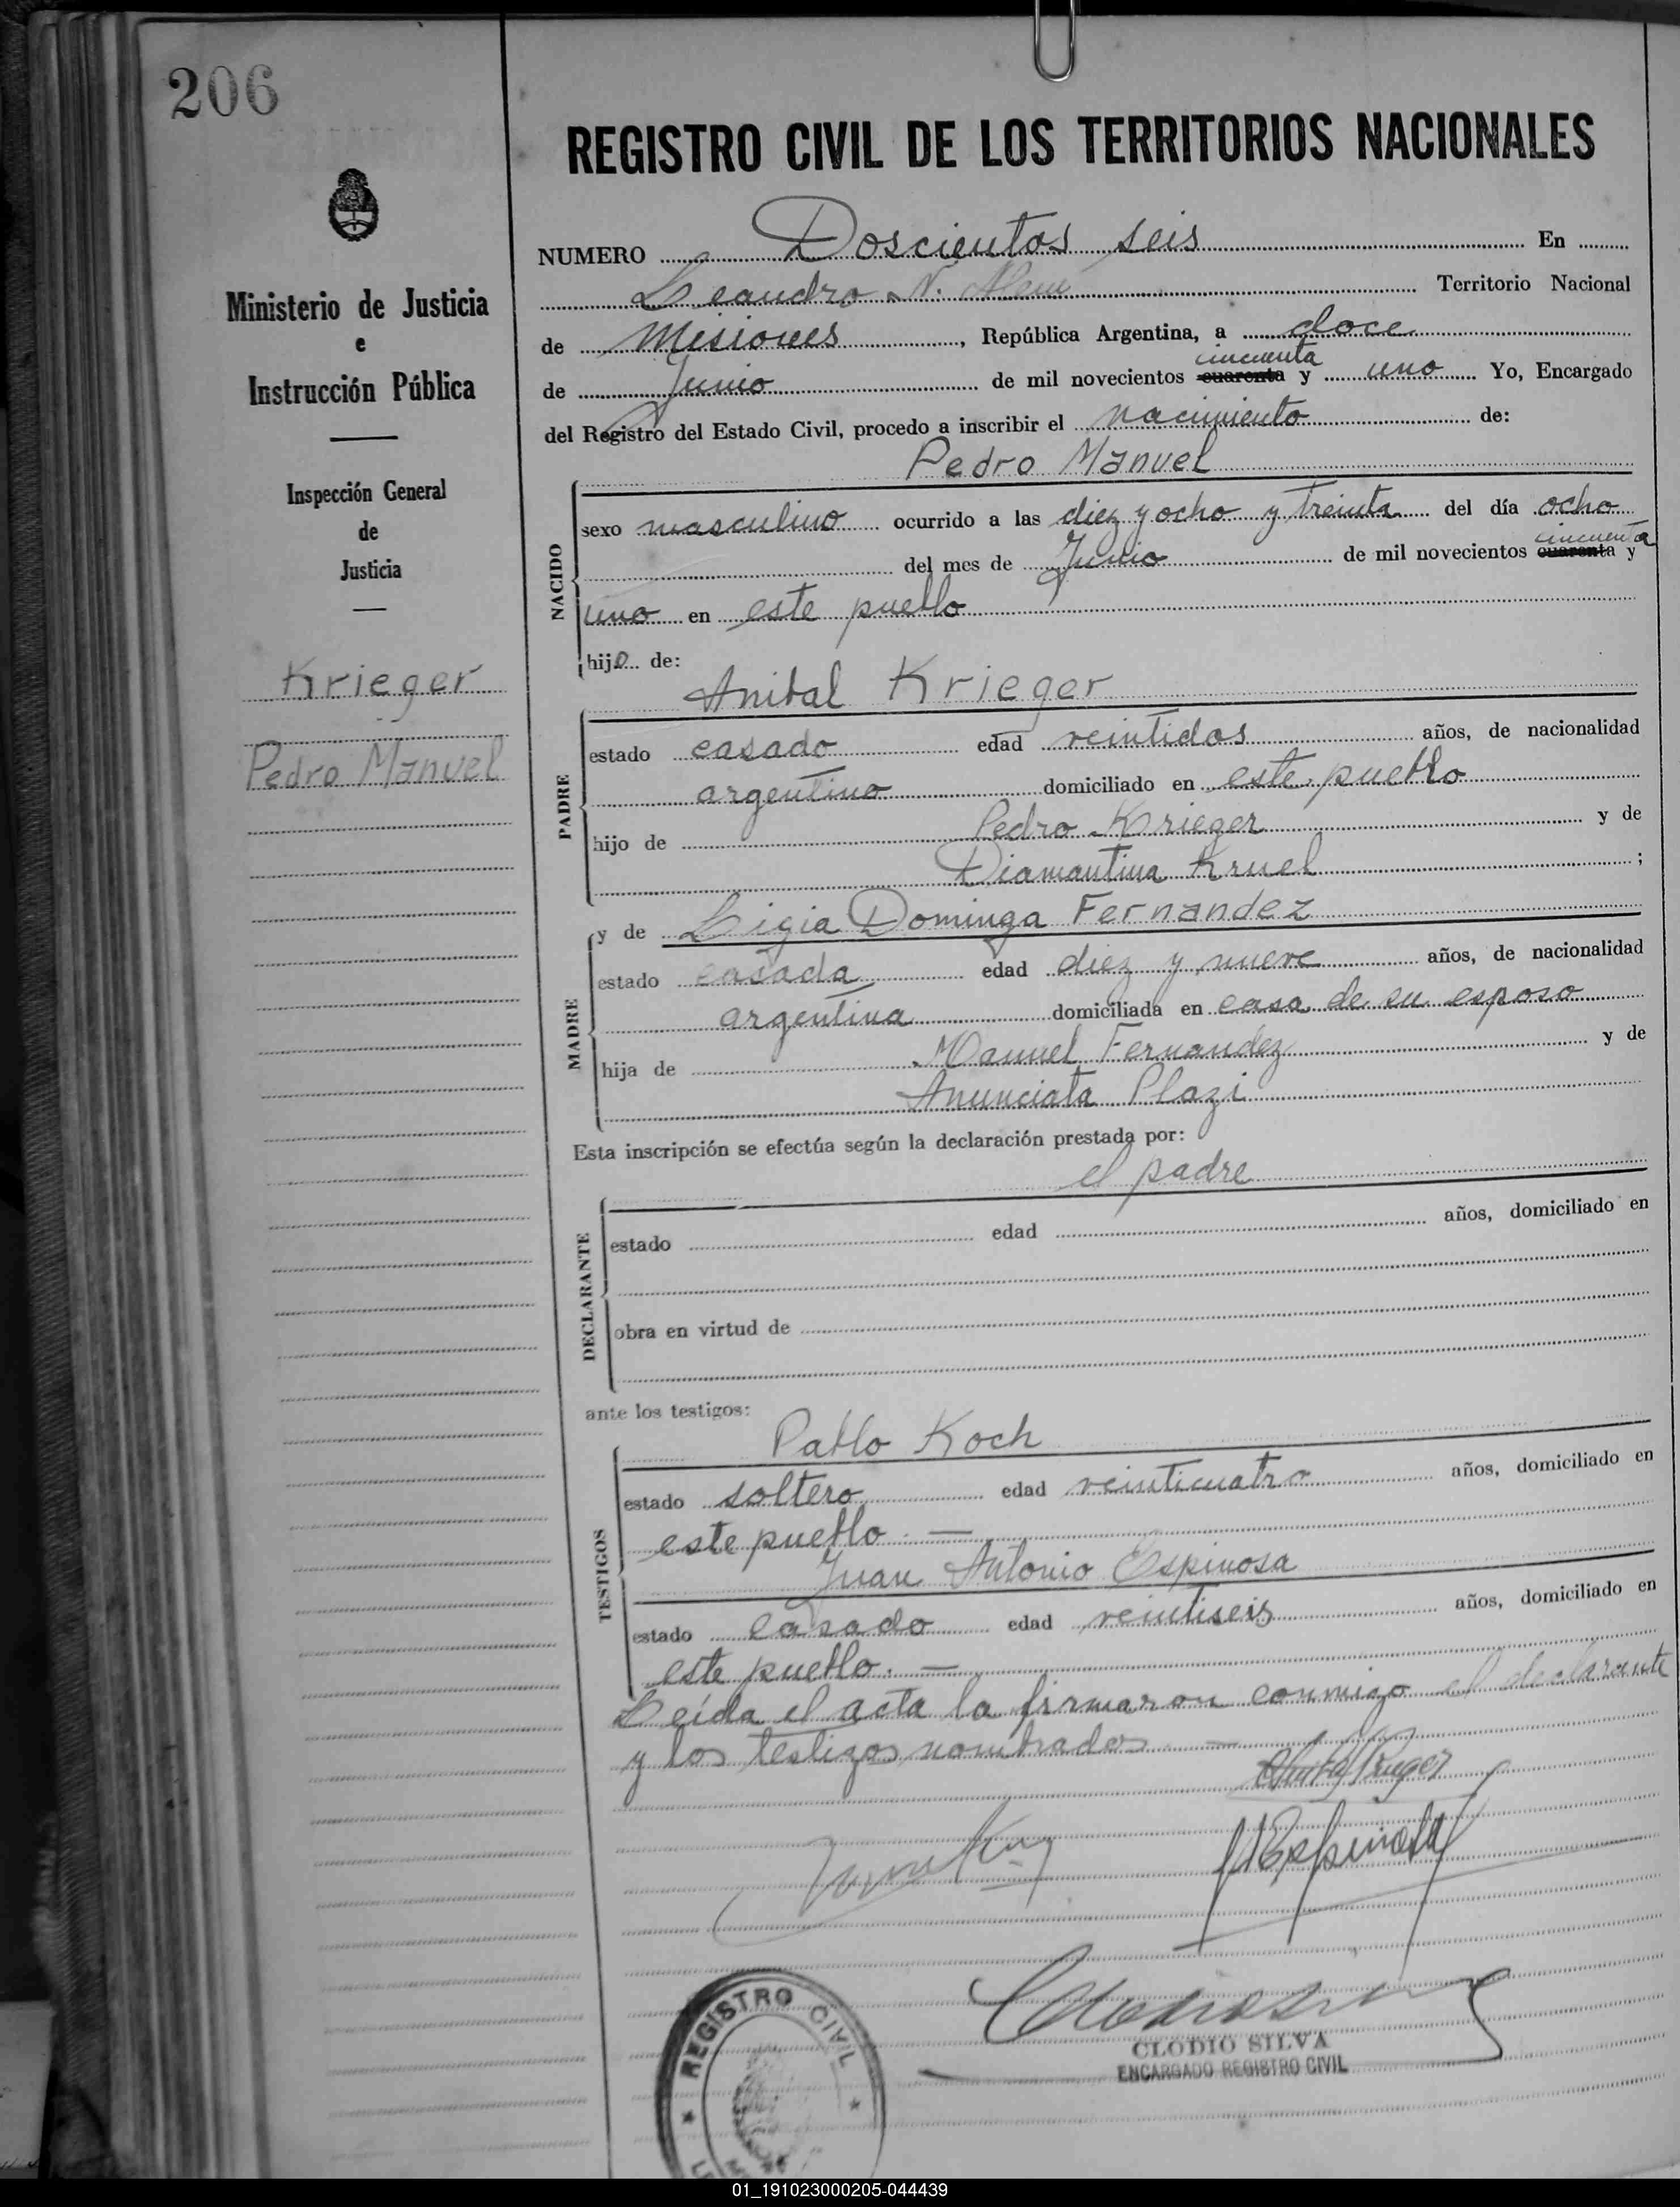 206
Ministerio de Justicia
e
Instrucción Pública
Inspección General
de
Justicia
Krieger
Pedro Manuel
REGISTRO CIVIL DE LOS TERRITORIOS NACIONALES
NUMERO Doscientos seis En
Leandro N. Alem Territorio Nacional
de Misiones, República Argentina, a doce
cincuenta
de Junio de mil novecientos cuarenta y uno Yo, Encargado
del Registro del Estado Civil, procedo a inscribir el nacimiento de:
Pedro Manuel
NACIDO
sexo masculino ocurrido a las diez y ocho y treinta del día ocho
cincuenta
del mes de Junio de mil novecientos cuarenta y
uno en este pueblo
hijo de:
Anibal Krieger
PADRE
estado casado edad veintidos años, de nacionalidad
argentino domiciliado en este pueblo
hijo de Pedro Krieger y de
Diamantina Kruel ;
y de Ligia Dominga Fernandez
MADRE
estado casada edad diez y nueve años, de nacionalidad
argentina domiciliada en casa de su esposo
hija de Manuel Fernandez y de
Anunciata Plazi
Esta inscripción se efectúa según la declaración prestada por:
el padre
DECLARANTE
estado edad años, domiciliado en
obra en virtud de
ante los testigos:
Pablo Koch
TESTIGOS
estado soltero edad veinticuatro años, domiciliado en
este pueblo. —
Juan Antonio Espinosa
estado casado edad veintiseis años, domiciliado en
este pueblo. —
Leída el acta la firmaron conmigo el declarante
y los testigos nombrados —
JAEspinosa
CLODIO SILVA
ENCARGADO REGISTRO CIVIL
REGISTRO CIVIL
01_191023000205-044439